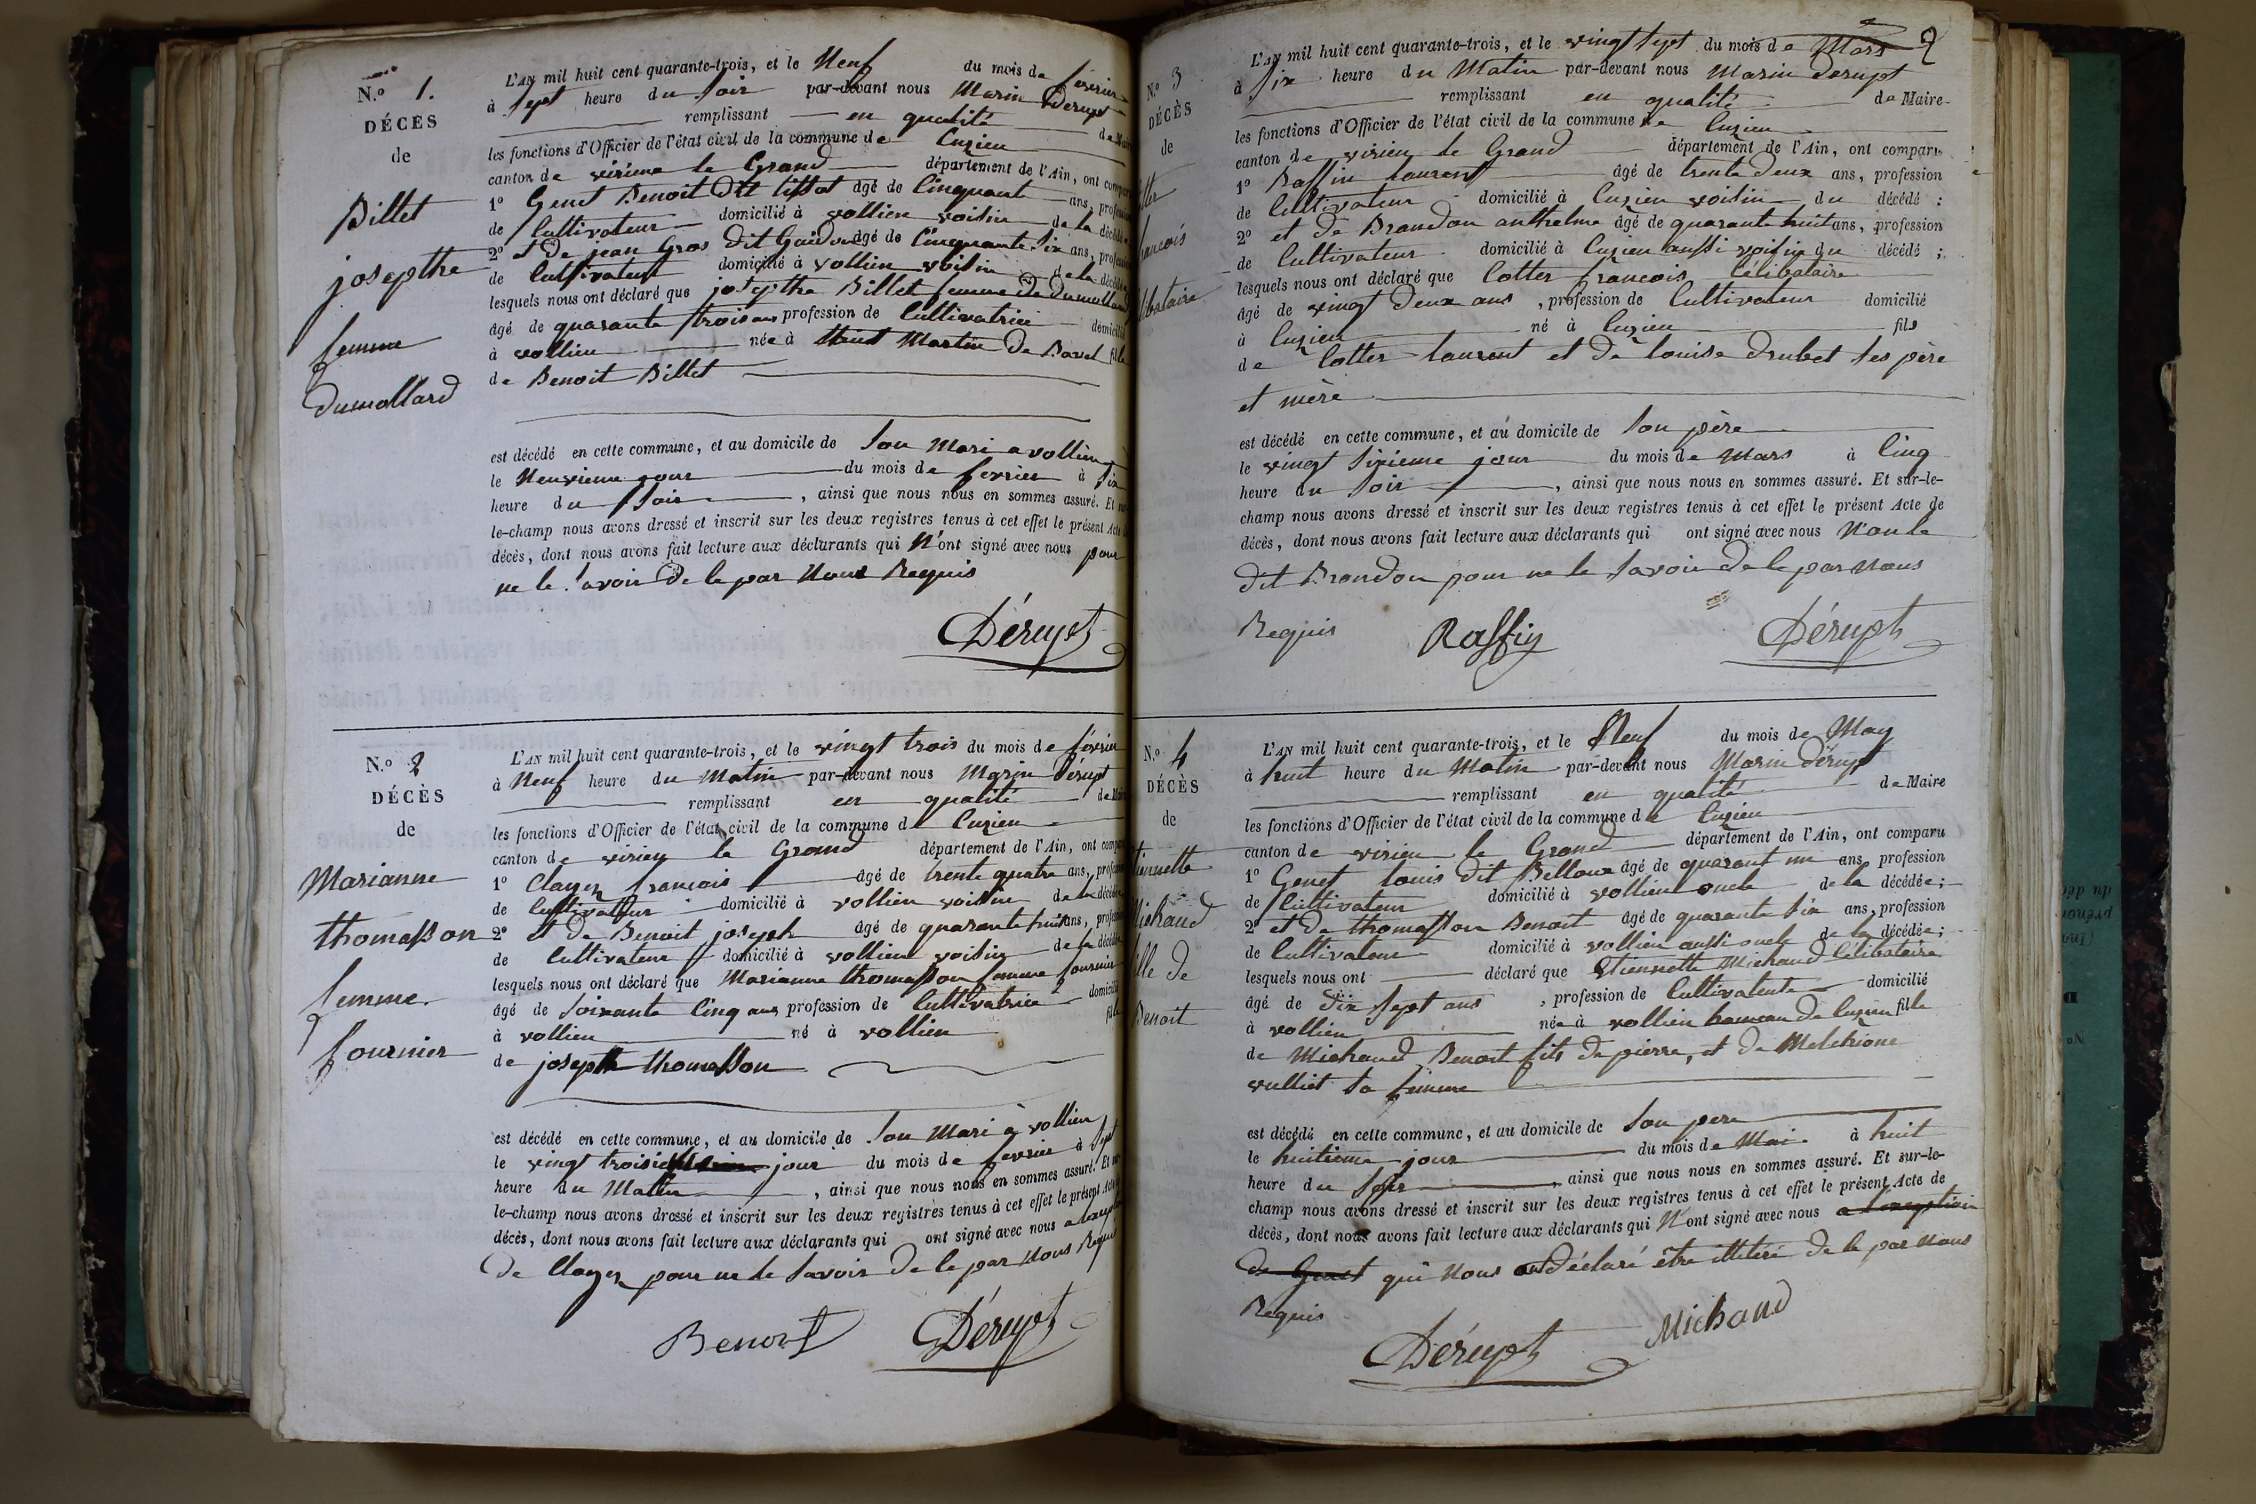 N.º 1.
DÉCÈS
de
Billet
josepthe
femme
Dumollard
L'AN mil huit cent quarante-trois, et le Neuf du mois de février
à sept heure du soir par-devant nous Marin Derupt
remplissant en qualité de Maire
les fonctions d'Officier de l'état civil de la commune de Cuzieu
canton de virieu le Grand département de l'Ain, ont comparu
1º Genet Benoit Dit tissot âgé de Cinquant ans, profession
de Cultivateur domicilié à vollien voisin de la décédée
2º et De jean Gros dit Gaidon âgé de Cinquante six ans, profession
de Cultivateur domicilié à vollien voisin de la décédée
lesquels nous ont déclaré que josepthe Billet femme de Dumollard
âgé de quarante trois ans profession de Cultivatrice domicilié
à vollien née à Saint Martin De Bavel fille
de Benoit Billet
est décédé en cette commune, et au domicile de son Mari a vollien
le Neuvieme jour du mois de fevrier à six
heure du soir, ainsi que nous nous en sommes assuré. Et sur-
le-champ nous avons dressé et inscrit sur les deux registres tenus à cet effet le présent Acte
décès, dont nous avons fait lecture aux déclarants qui N'ont signé avec nous pour
ne le savoir De le par Nous Requis
Dérupt
N.º 2
DÉCÈS
de
Marianne
thomasson
femme
fournier
L'AN mil huit cent quarante-trois, et le vingt trois du mois de février
à Neuf heure du Matin par-devant nous Marin Dérupt
remplissant en qualité de Maire
les fonctions d'Officier de l'état civil de la commune de Cuzieu
canton de virieu le Grand département de l'Ain, ont comparu
1º Clayer francois âgé de trente quatre ans, profession
de Cultivateur domicilié à vollien voisin de la décédée
2º et De Benoit joseph âgé de quarante huit ans, profession
de Cultivateur domicilié à vollien voisin de la décédée
lesquels nous ont déclaré que Marianne thomasson femme fournier
âgé de soixante Cinq ans profession de Cultivatrice domicilié
à vollien né à vollien fille
de joseph thomasson
est décédé en cette commune, et au domicile de son Mari à vollien
le vingt troisieme jour du mois de fevrier à sept
heure du Matin, ainsi que nous nous en sommes assuré. Et sur-
le-champ nous avons dressé et inscrit sur les deux registres tenus à cet effet le présent Acte
décès, dont nous avons fait lecture aux déclarants qui ont signé avec nous a l'exception
De Clayer pour ne le savoir De le par Nous Requis
Benoit Dérupt
2
N.º 3
DÉCÈS
de
otter
rancois
libataire
L'AN mil huit cent quarante-trois, et le vingt sept du mois de Mars
à six heure du Matin par-devant nous Marin Derupt
remplissant en qualité de Maire
les fonctions d'Officier de l'état civil de la commune de Cuzieu
canton de virieu le Grand département de l'Ain, ont comparu
1º Raffin laurent âgé de trente deux ans, profession
de Cultivateur domicilié à Cuzieu voisin du décédé :
2º et De Brandon anthelme âgé de quarante huit ans, profession
de Cultivateur domicilié à Cuzieu aussi voisin du décédé ;
lesquels nous ont déclaré que Cotter francois Célibataire
âgé de vingt Deux ans, profession de Cultivateur domicilié
à Cuzieu né à Cuzieu fils
de Cotter laurent et De louise Drubet ses père
et mère
est décédé en cette commune, et au domicile de son père
le vingt sixieme jour du mois de Mars à Cinq
heure du soir, ainsi que nous nous en sommes assuré. Et sur-le-
champ nous avons dressé et inscrit sur les deux registres tenus à cet effet le présent Acte de
décès, dont nous avons fait lecture aux déclarants qui ont signé avec nous Non le
dit Brandon pour ne le savoir De le par Nous
Requis Raffin Dérupt
N.º 4
DÉCÈS
de
tiennette
Michaud
ille de
Benoit
L'AN mil huit cent quarante-trois, et le Neuf du mois de May
à huit heure du Matin par-devant nous Marin Dérupt
remplissant en qualité de Maire
les fonctions d'Officier de l'état civil de la commune de Cuzieu
canton de virieu le Grand département de l'Ain, ont comparu
1º Genet louis dit Belloux âgé de quarant un ans profession
de Cultivateur domicilié à vollien oncle de la décédée ;
2º et De thomasson Benoit âgé de quarante six ans, profession
de Cultivateur domicilié à vollien aussi oncle de la décédée ;
lesquels nous ont déclaré que Etiennette Michaud Célibataire
âgé de Dix sept ans, profession de Cultivateute domicilié
à vollien née à vollien hameau de Cuzieu fille
de Michaud Benoit fils De pierre, et De Melchione
vulliet sa femme
est décédé en cette commune, et au domicile de son pere
le huitieme jour du mois de Mai à huit
heure du soir, ainsi que nous nous en sommes assuré. Et sur-le-
champ nous avons dressé et inscrit sur les deux registres tenus à cet effet le présent Acte de
décès, dont nous avons fait lecture aux déclarants qui N'ont signé avec nous a l'exception
de Genet qui Nous ont déclaré être illitéré De le par Nous
Requis
Dérupt Michaud